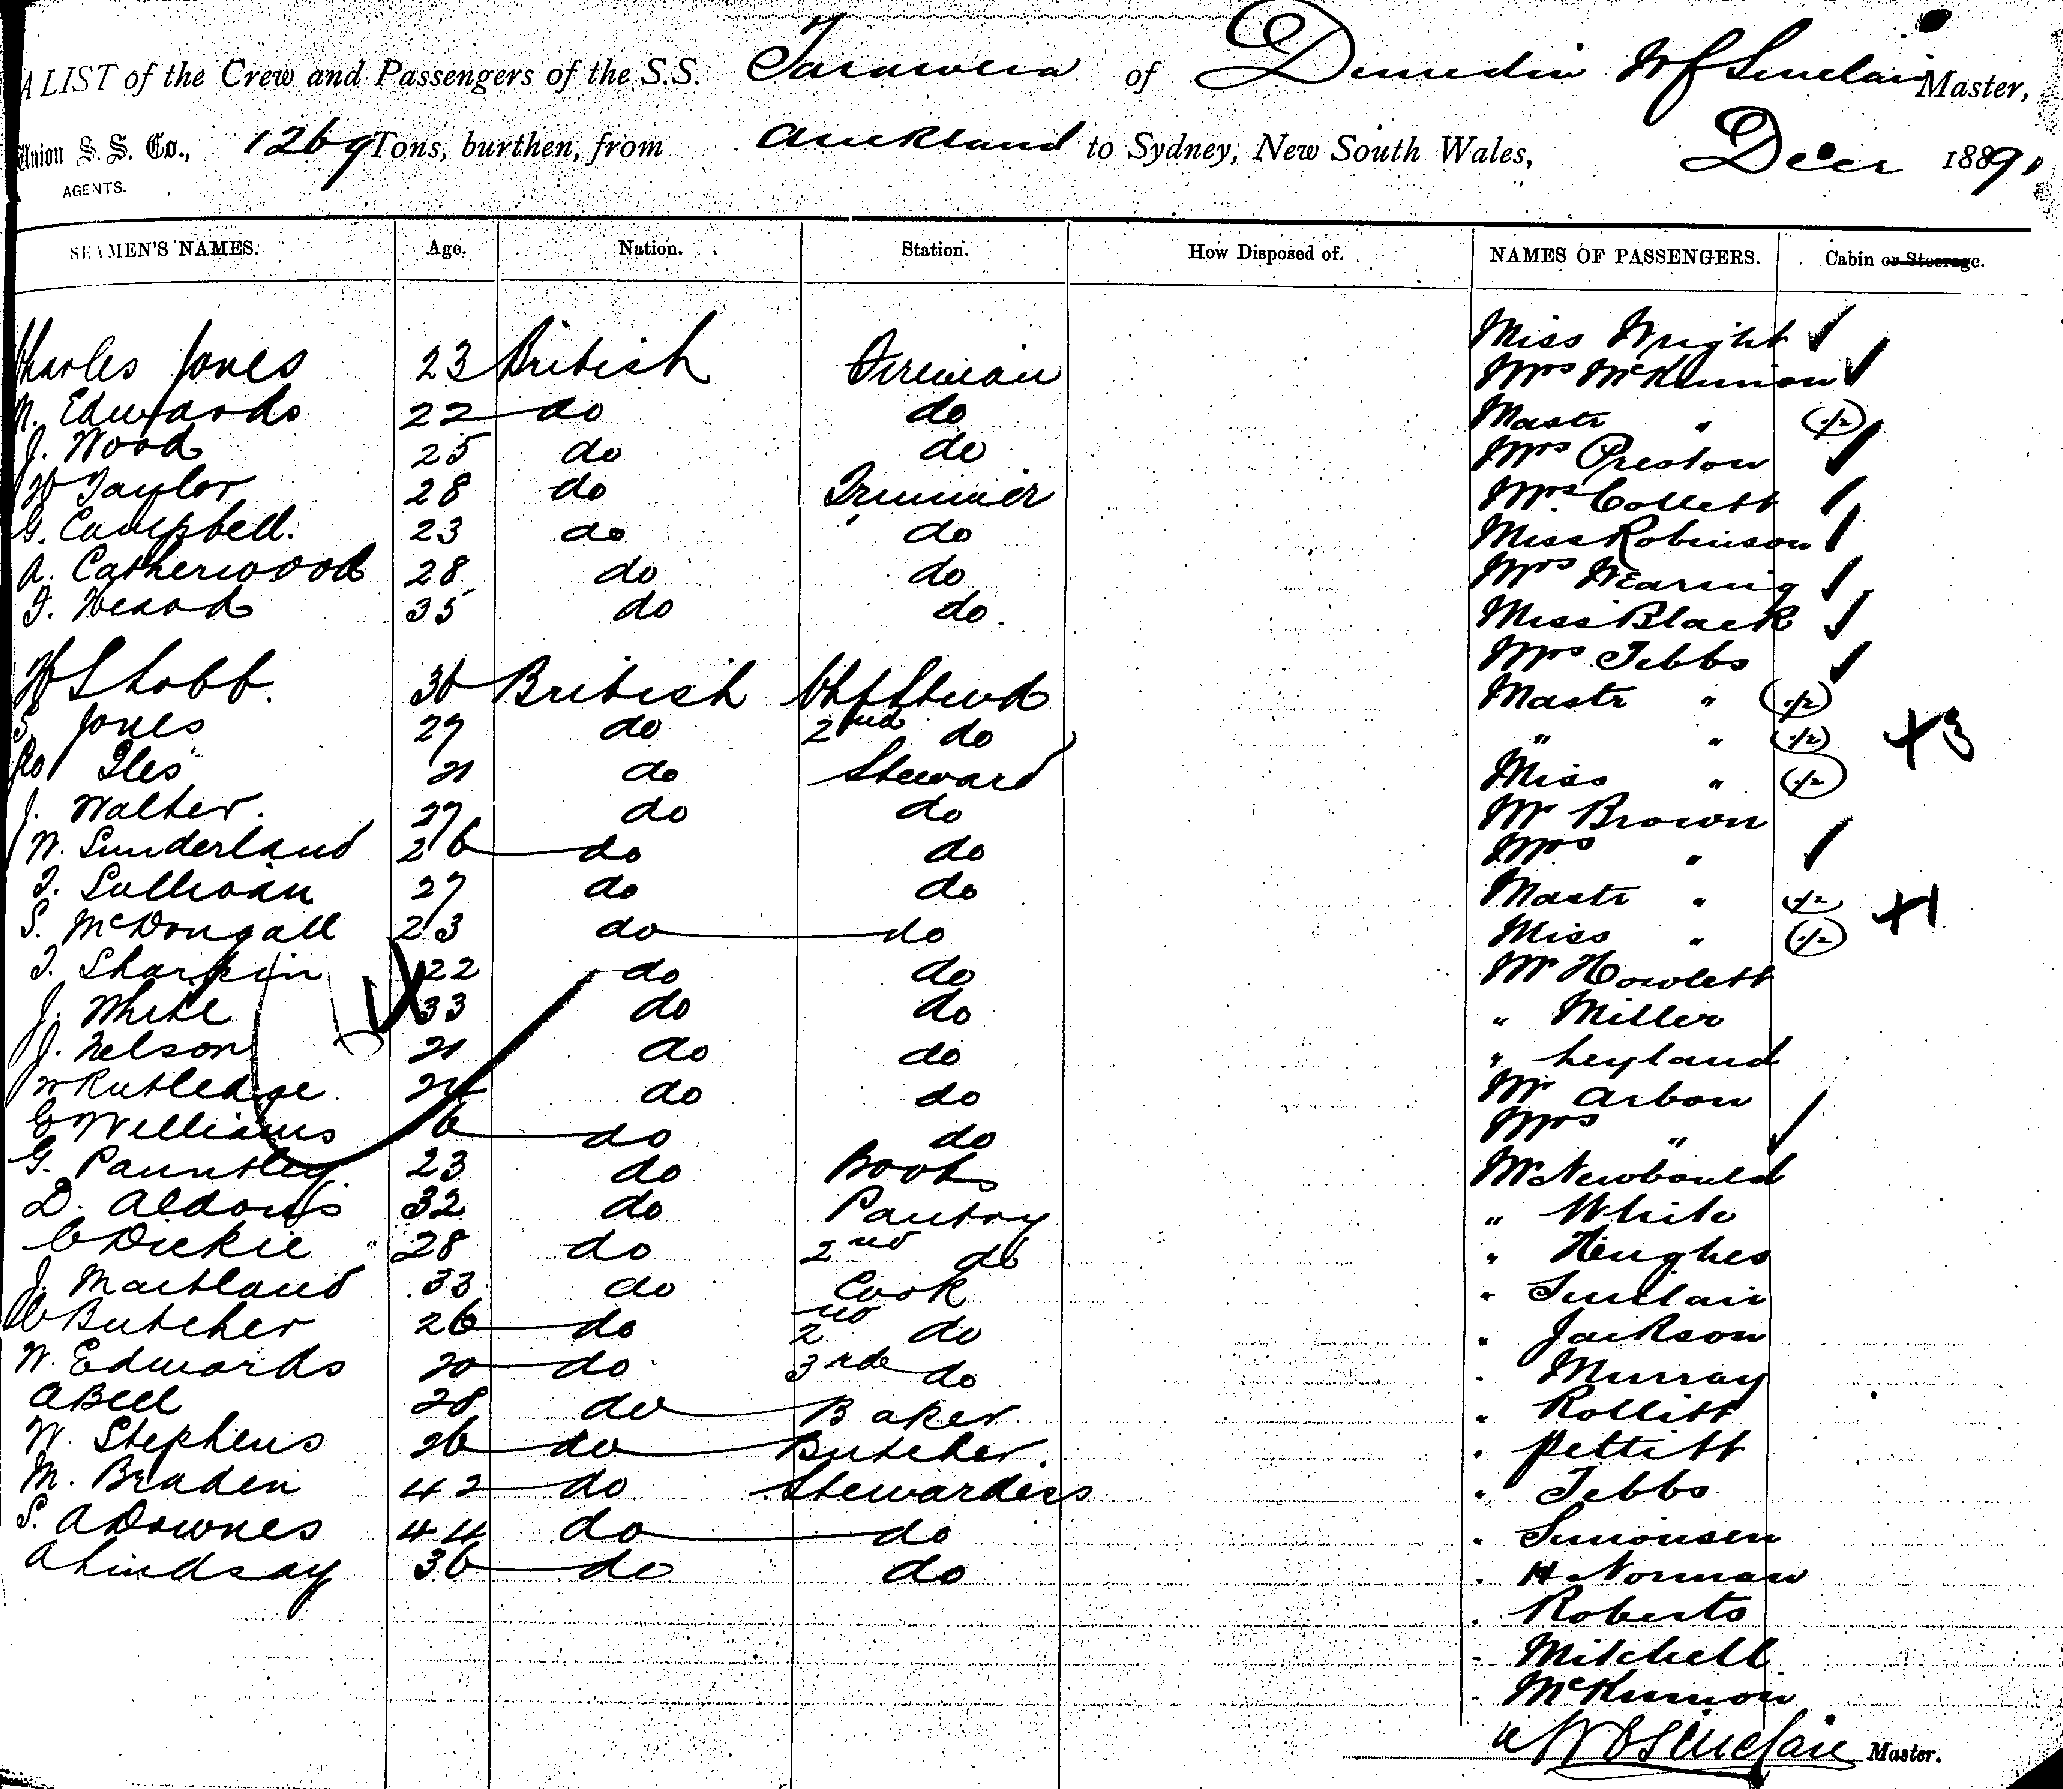 A LIST of the Crew and Passengers of the S.S. Tarawera of Dunedin W J Sinclair Master,
Union S. S. Co., 1269 Tons, burthen, from Auckland to Sydney, New South Wales, Decr 1889.
AGENTS.
SEAMEN'S NAMES. Age. Nation. Station. How Disposed of. NAMES OF PASSENGERS. Cabin or Steerage.
Charles Jones 23 British Fireman Miss Wright
Mrs McKinnon
N. Edwards 22 do do Mastr " (1/2)
J. Wood 25 do do Mrs Preston
W Taylor 28 do Trimmer Mrs Collett
G. Campbell. 23 do do Miss Robinson
A. Catherwood 28 do do Mrs Wearing
T. Heard 35 do do Miss Black
Mrs Tebbs
W Stobb. British Chf Stewd Mastr " (1/2)
S. Jones 27 do 2nd do " " (1/2) +3
Iles 21 do Steward Miss " (1/2)
J. Walker. 27 do do Mr Brown
W. Sunderland 26 do do Mrs "
T. Sullivan 27 do do Mastr " 1/2 +1
S. McDougall 23 do do Miss " (1/2)
T. Sharpin 22 do do Mr Howlett
J. White 33 do do " Miller
J. Nelson 21 do do " Leyland
W Rutledge do do Mr Arbon
C Williams do do Mrs "
G. Pauntley. 23 do Boots Mr Newbould
D. Aldous 32 do Pantry " White
C Dickie 28 do 2nd do " Hughes
J. Maitland 33 do Cook " Sinclair
C Butcher 26 do 2nd do " Jackson
W. Edwards 20 do 3rd do " Murray
A Bell 28 do Baker " Rollitt
W. Stephens 26 do Butcher. " Pettitt
M. Braden 42 do Stewardess " Tebbs
S. A Downes 44 do do " Simonsen
A Lindsay 36 do do " H Norman
" Roberts
" Mitchell
" McKinnon
W J Sinclair Master.